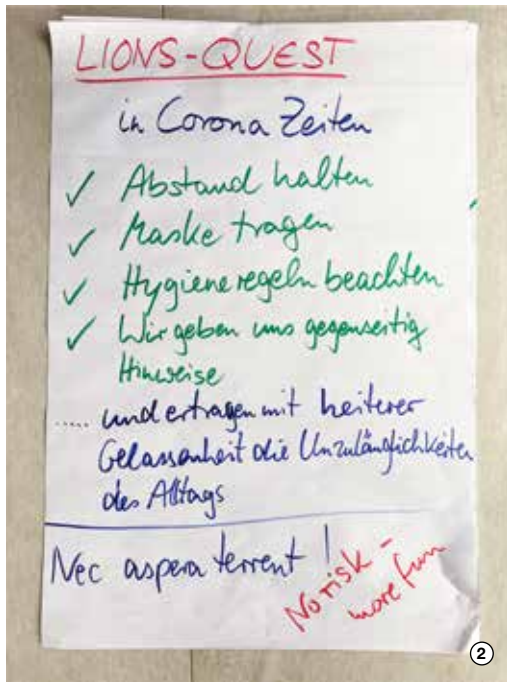 LIONS-QUEST
in Corona Zeiten
✓ Abstand halten
✓ Maske tragen
✓ Hygieneregeln beachten
✓ Wir geben uns gegenseitig
Hinweise
..... und ertragen mit heiterer
Gelassenheit die Unzulänglichkeiten
des Alltags
Nec aspera terrent !
No risk -
more fun
2